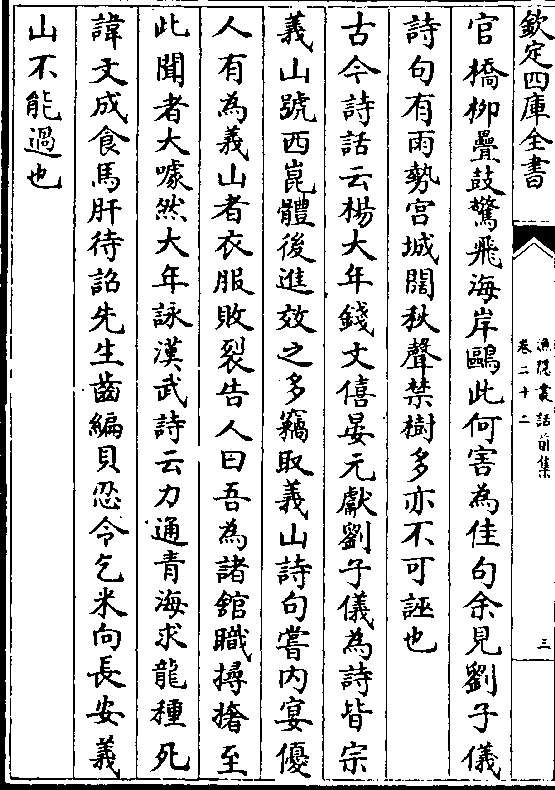 欽定四庫全書
漁隱叢話前集
卷二十二
三
官橋柳疊鼓驚飛海岸鷗此何害為佳句余見劉子儀
詩句有雨勢宮城闊秋聲禁樹多亦不可誣也
古今詩話云楊大年錢文僖晏元獻劉子儀為詩皆宗
義山號西崑體後進效之多竊取義山詩句嘗內宴優
人有為義山者衣服敗裂告人曰吾為諸館職撏撦至
此聞者大噱然大年詠漢武詩云力通青海求龍種死
諱文成食馬肝待詔先生齒編貝忍令乞米向長安義
山不能過也